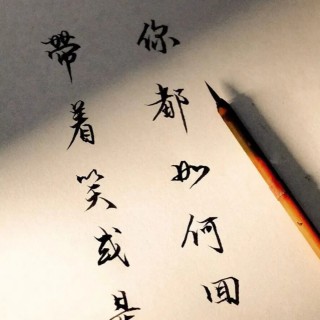 你都如何回
帶着笑或是